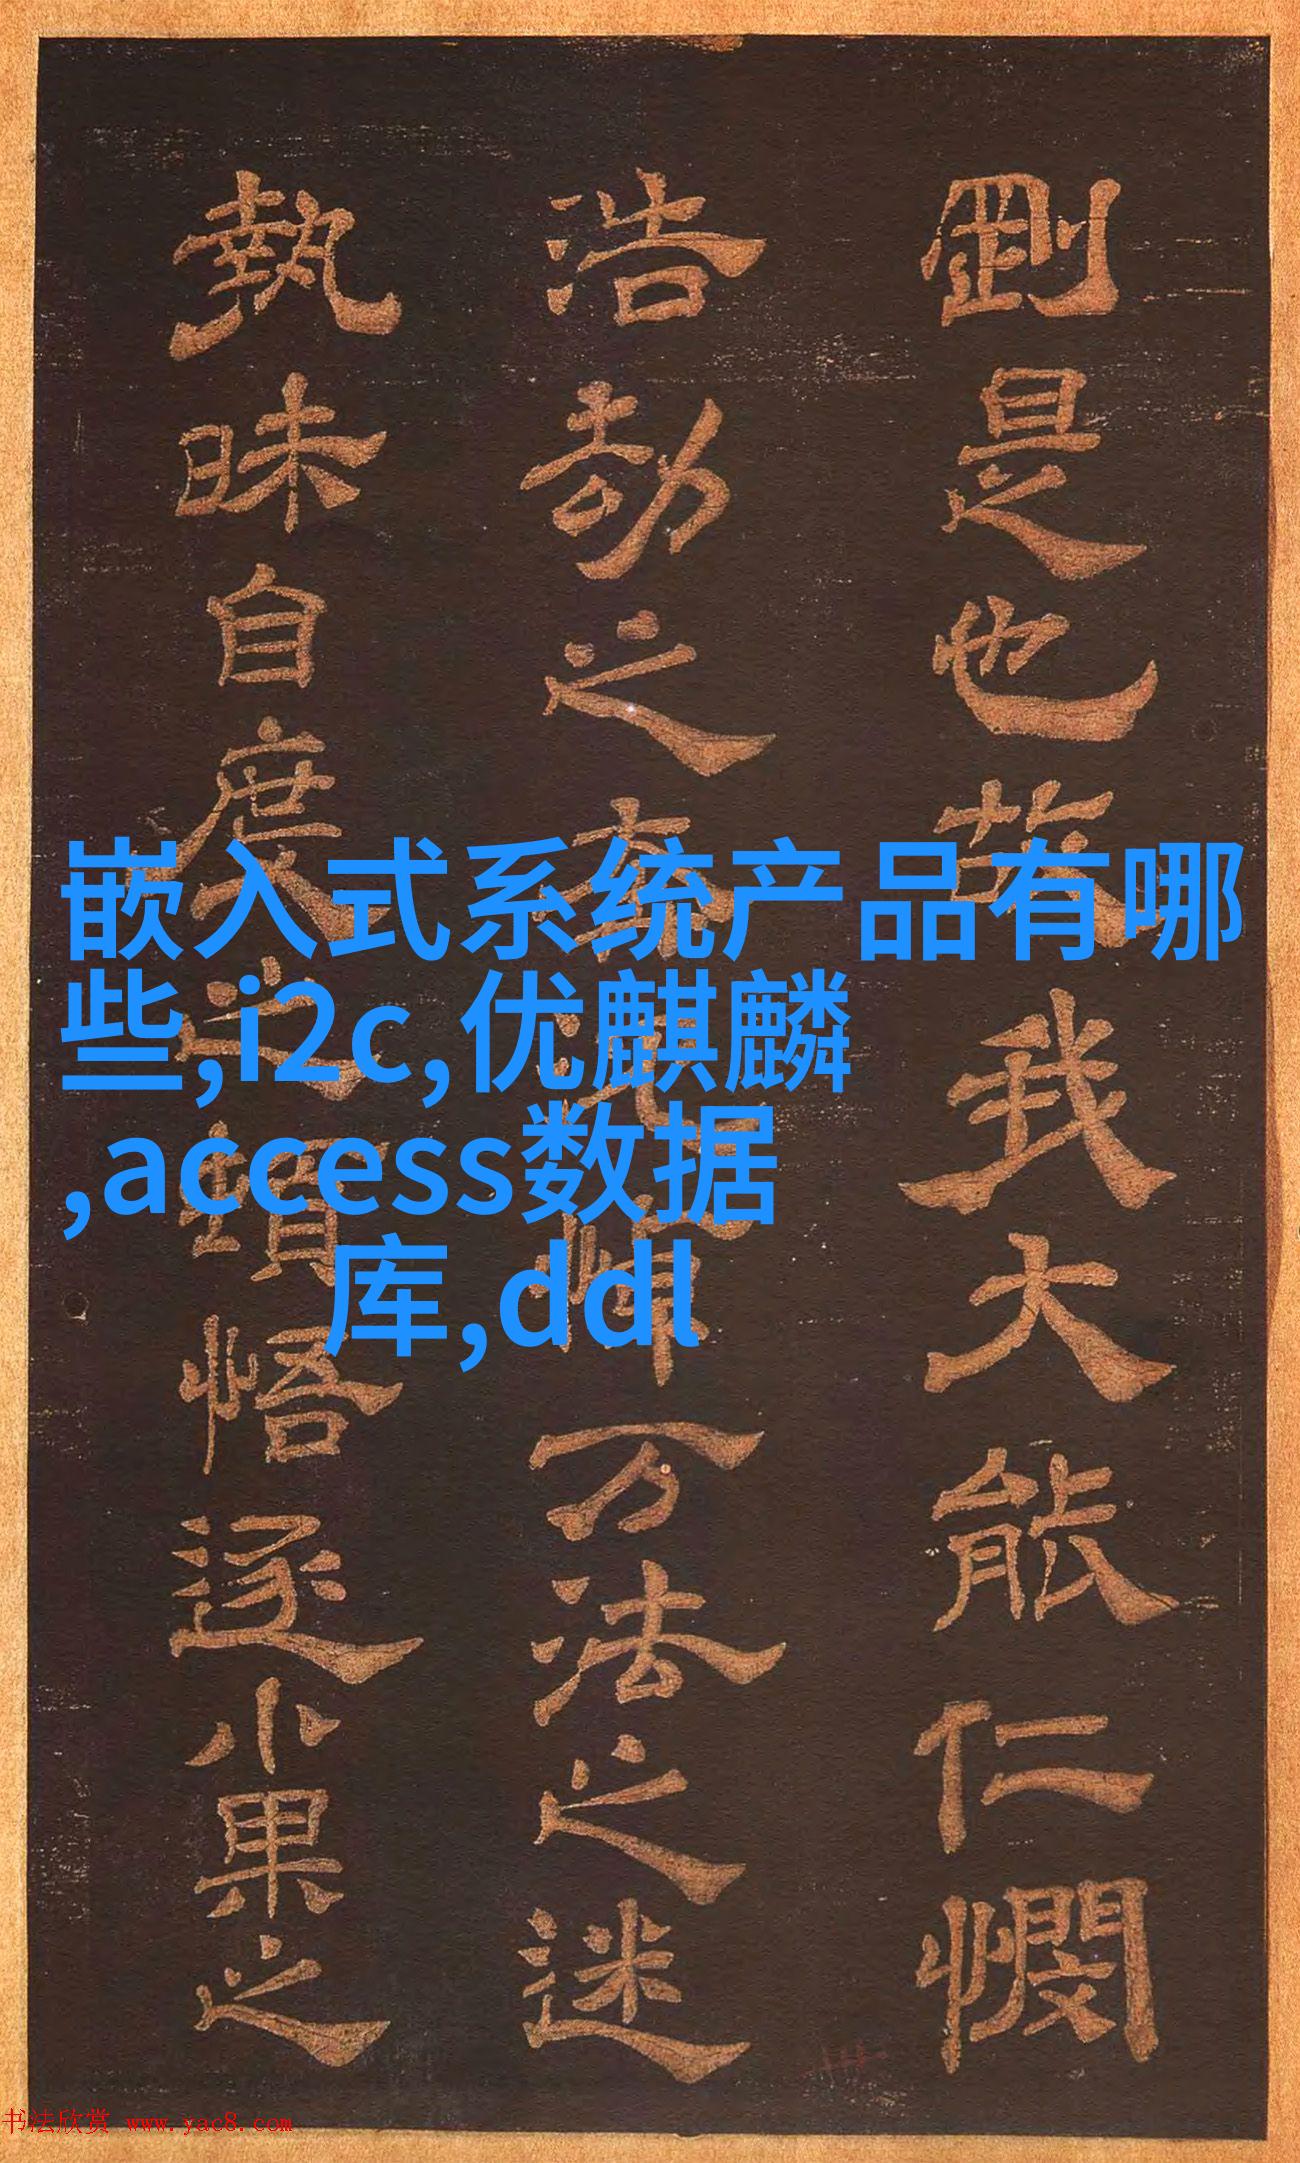 剛是也故我大能仁憫
浩劫之万法之迷
執昧自度之頓悟逐小果之
嵌入式系统产品有哪
些,i2c,优麒麟
,access数据
库,ddl
书法欣赏 www.yac8.com